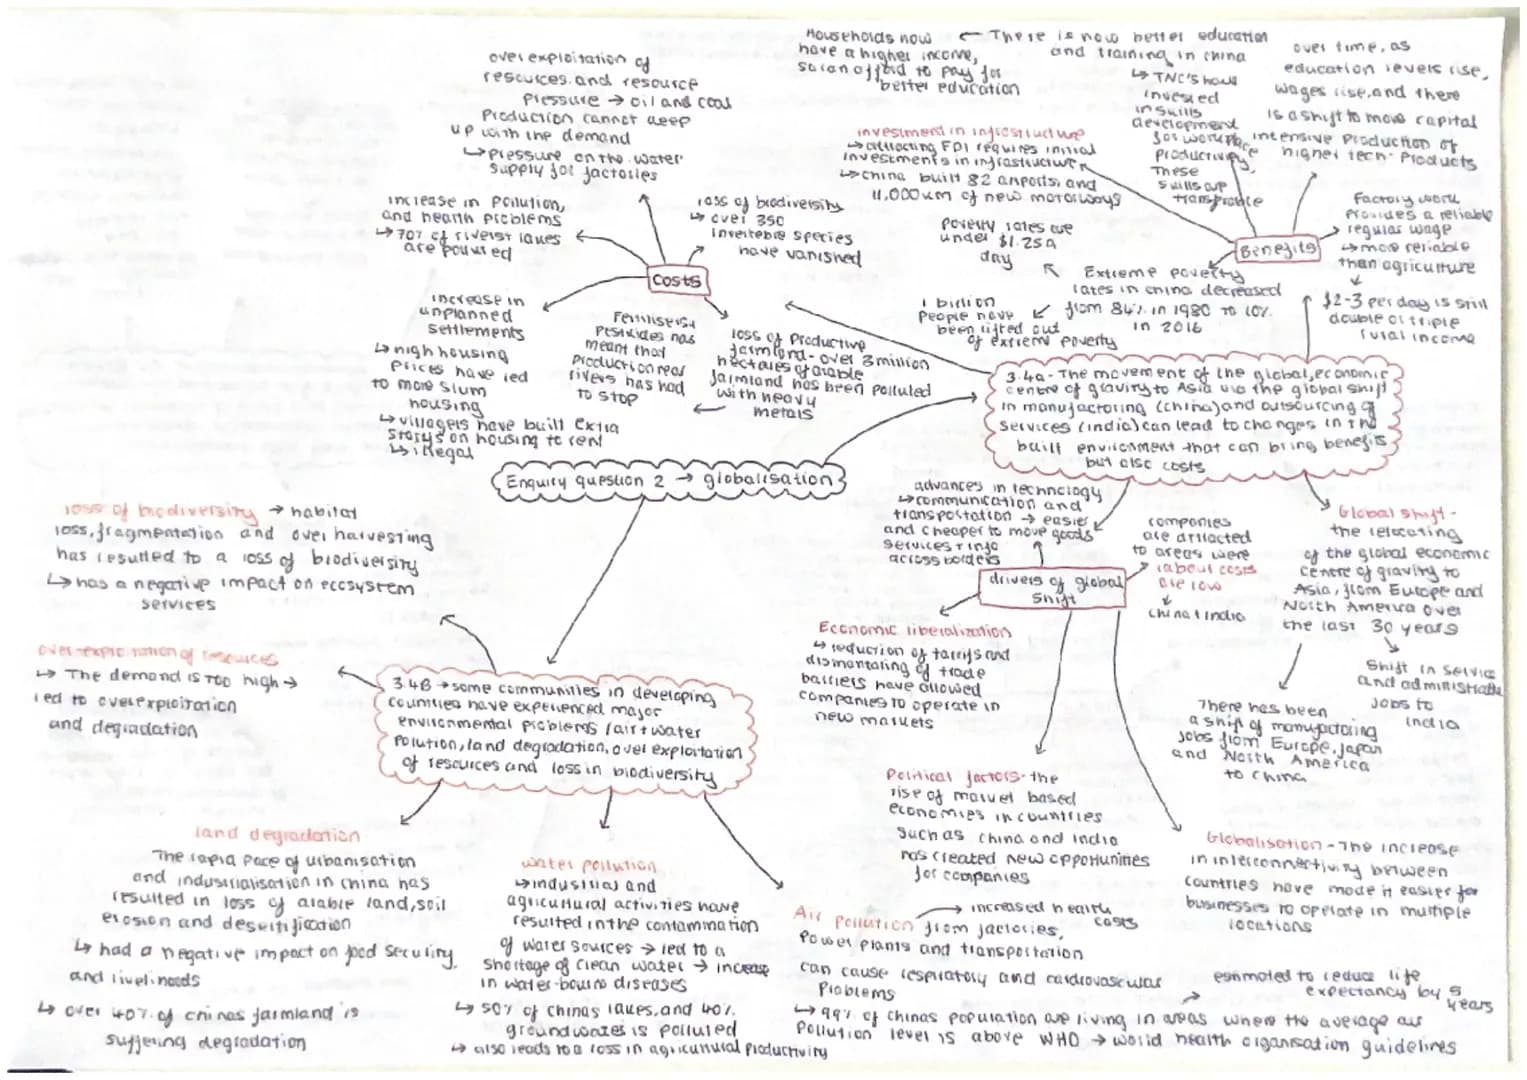 Enquiry question 2 → globalisation
3.4a - The movement of the global, economic
centre of gravity to Asia via the global shift
in manufactoring (china) and outsourcing of
services (india) can lead to changes in the
built environment that can bring benefits
but also costs
Costs
over exploitation of
resources and resource
Pressure → oil and coal
Production cannot keep
up with the demand
↳ Pressure on the water
supply for factories
increase in Pollution,
and health problems
↳ 70% of rivers + lakes
are polluted
loss of biodiversity
↳ over 350
invertebrate species
have vanished
increase in
unplanned
settlements
↳ high housing
Prices have led
to more slum
housing
↳ villagers have built extra
storys on housing to rent
↳ illegal
loss of Productive
farmland - over 3 million
hectares of arable
farmland has been polluted
with heavy
metals
Fertilisers +
Pesticides has
meant that
production near
rivers has had
to stop
Benefits
investment in infrastructure
↳ attracting FDI requires initial
investments in infrastructure
↳ china built 82 airports, and
11,000km of new motorways
There is now better education
and training in china
Households now
have a higher income,
so can afford to pay for
better education
↳ TNC's have
invested
in skills
development
for workplace
Productivity,
These
skills are
over time, as
education levels rise,
wages rise, and there
is a shift to more capital
intensive Production of
higher tech Products
Factory work
provides a reliable
regular wage
↳ more reliable
than agriculture
$2-3 per day is still
double or triple
rural income
Extreme poverty
rates in china decreased
from 84% in 1980 to 10%
in 2016
Poverty rates are
under $1.25 a
day
1 billion
People have
been lifted out
of extreme poverty
drivers of global
shift
advances in technology
↳ communication and
transportation → easier
and cheaper to move goods
services + info
across borders
companies
are attracted
to areas were
labout costs
are low
china + india
Economic liberalization
↳ reduction of tarrifs and
dismantaling of trade
barriers have allowed
companies to operate in
new markets
Political factors - the
rise of market based
economies in countries
such as china and India
has created new opportunities
for companies
Globalisation - The increase
in interconnectivity between
countries have made it easier for
businesses to operate in multiple
locations
Global shift -
the relocating
of the global economic
centre of gravity to
Asia, from Europe and
North America over
the last 30 years
Shift in service
and administrative
jobs to
india
There has been
a shift of manufactoring
jobs from Europe, Japan
and North America
to china
3.4B → some communities in developing
countries have experienced major
environmental problems (air + water
Pollution, land degradation, over exploitation
of resources and loss in biodiversity
loss of biodiversity → habitat
loss, fragmentation and over harvesting
has resulted to a loss of biodiversity
↳ has a negative impact on eccsystem
services
over exploitation of resources
↳ The demand is TOO high →
led to overexploitation
and degradation
land degradation
The rapid pace of urbanisation
and industrialisation in china has
resulted in loss of arable land, soil
erosion and desertification
↳ had a negative impact on food security
and livelihoods
↳ over 40% of chinas farmland is
suffering degradation
water pollution
↳ industrial and
agricultural activities have
resulted in the contamination
of water sources → led to a
shortage of clean water → increase
in water-bourn diseases
↳ 50% of chinas lakes, and 40%
groundwater is polluted
↳ also leads to a loss in agricultural productivity
Air pollution from factories,
Power plants and transportation
can cause respiratory and cardiovascular
Problems
→ increased health
costs
↳ 99% of chinas population are living in areas where the average air
Pollution level is above WHO → world health organisation guidelines
estimated to reduce life
expectancy by 5
years